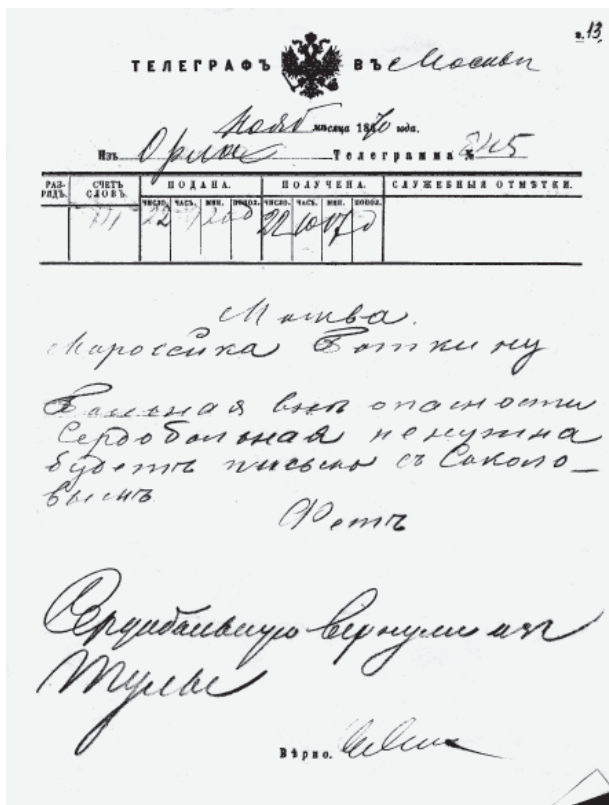 л. 13
ТЕЛЕГРАФЪ ВЪ Москвѣ
Нояб мѣсяца 1870 года.
Изъ Орла Телеграмма №
РАЗ-РЯДЪ. СЧЕТЪ СЛОВЪ. ПОДАНА. ПОЛУЧЕНА. СЛУЖЕБНЫЯ ОТМѢТКИ.
ЧИСЛО. ЧАСЪ. МИН. ПОПОЛ. ЧИСЛО. ЧАСЪ. МИН. ПОПОЛ.
22 22 10
Москва.
Маросейка Боткину
Больная внѣ опасности
Сердобольная не нужна
будетъ письмо съ Соколо_
вымъ
Фетъ
Сердобольную вернули изъ
Тулы
Вѣрно.